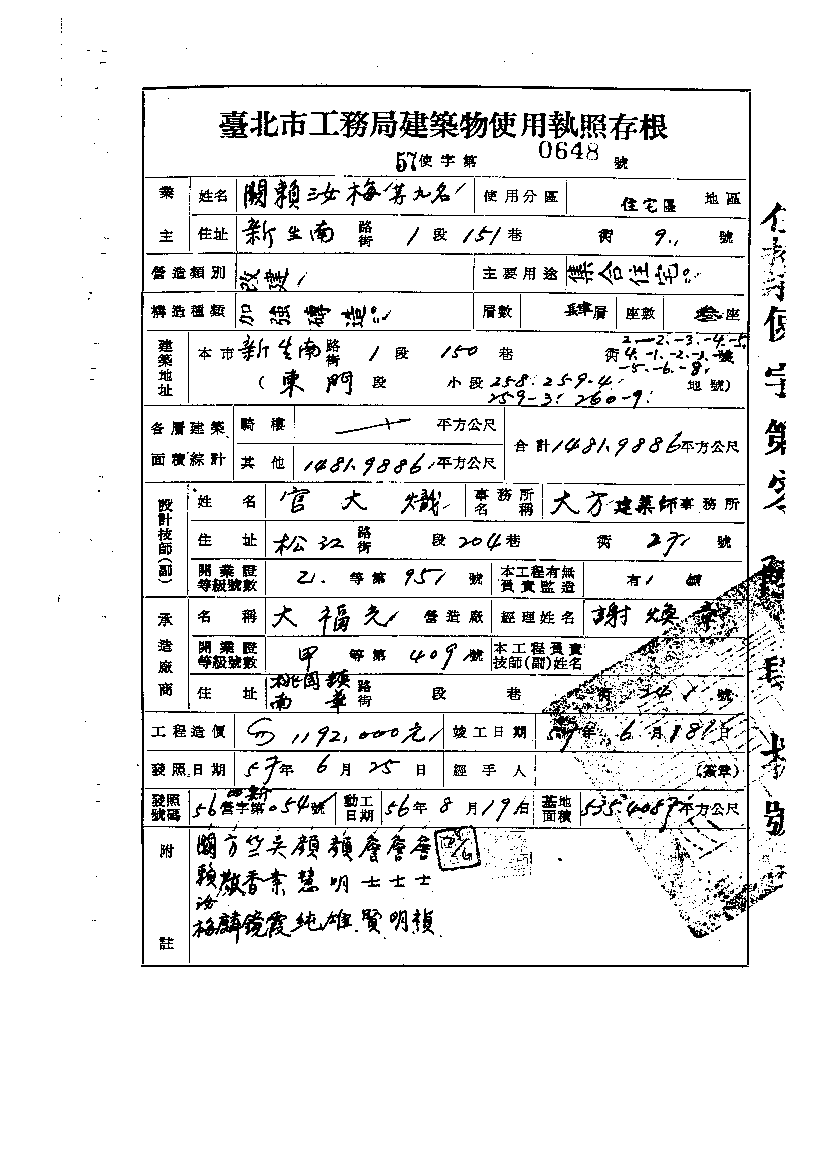 臺北市工務局建築物使用執照存根
57使字第 0648 號
業主 姓名 關賴汝梅等九名 使用分區 住宅區 地區
住址 新生南路街 1段151巷 街 9 號
營造類別 改建 主要用途 集合住宅
構造種類 加強磚造 層數 層 座數 座
建築地址 本市新生南路街 1段 150巷 街 號
2-2.-3.-4.-5.
4.-1.-2.-3.
-5.-6.-8.
(東門段 小段 258.259-4. 地號)
259-3.260-9.
各層建築面積綜計 騎樓 平方公尺 合計1481.9886平方公尺
其他 1481.9886平方公尺
設計技師(副) 姓名 官大熾 事務所名稱 大方建築師事務所
住址 松江路街 段204巷 街 27 號
開業證等級號數 2等第951號 本工程有無負責監造 有
承造廠商 名稱 大福光 營造廠 經理姓名 謝煥章
開業證等級號數 甲等第409號 本工程負責技師(副)姓名
住址 桃園鎮南華路街 段 巷 街 號
工程造價 1192,000元 竣工日期 57年6月18日
發照日期 57年6月25日 經手人 (簽章)
發照號碼 56營字第054號 動工日期 56年8月19日 基地面積 535.4087平方公尺
附註
關賴汝梅
方麟
竺香鏡
吳素霞
顏慧純
顏明雄
詹士賢
詹士明
詹士禎
使字第
號